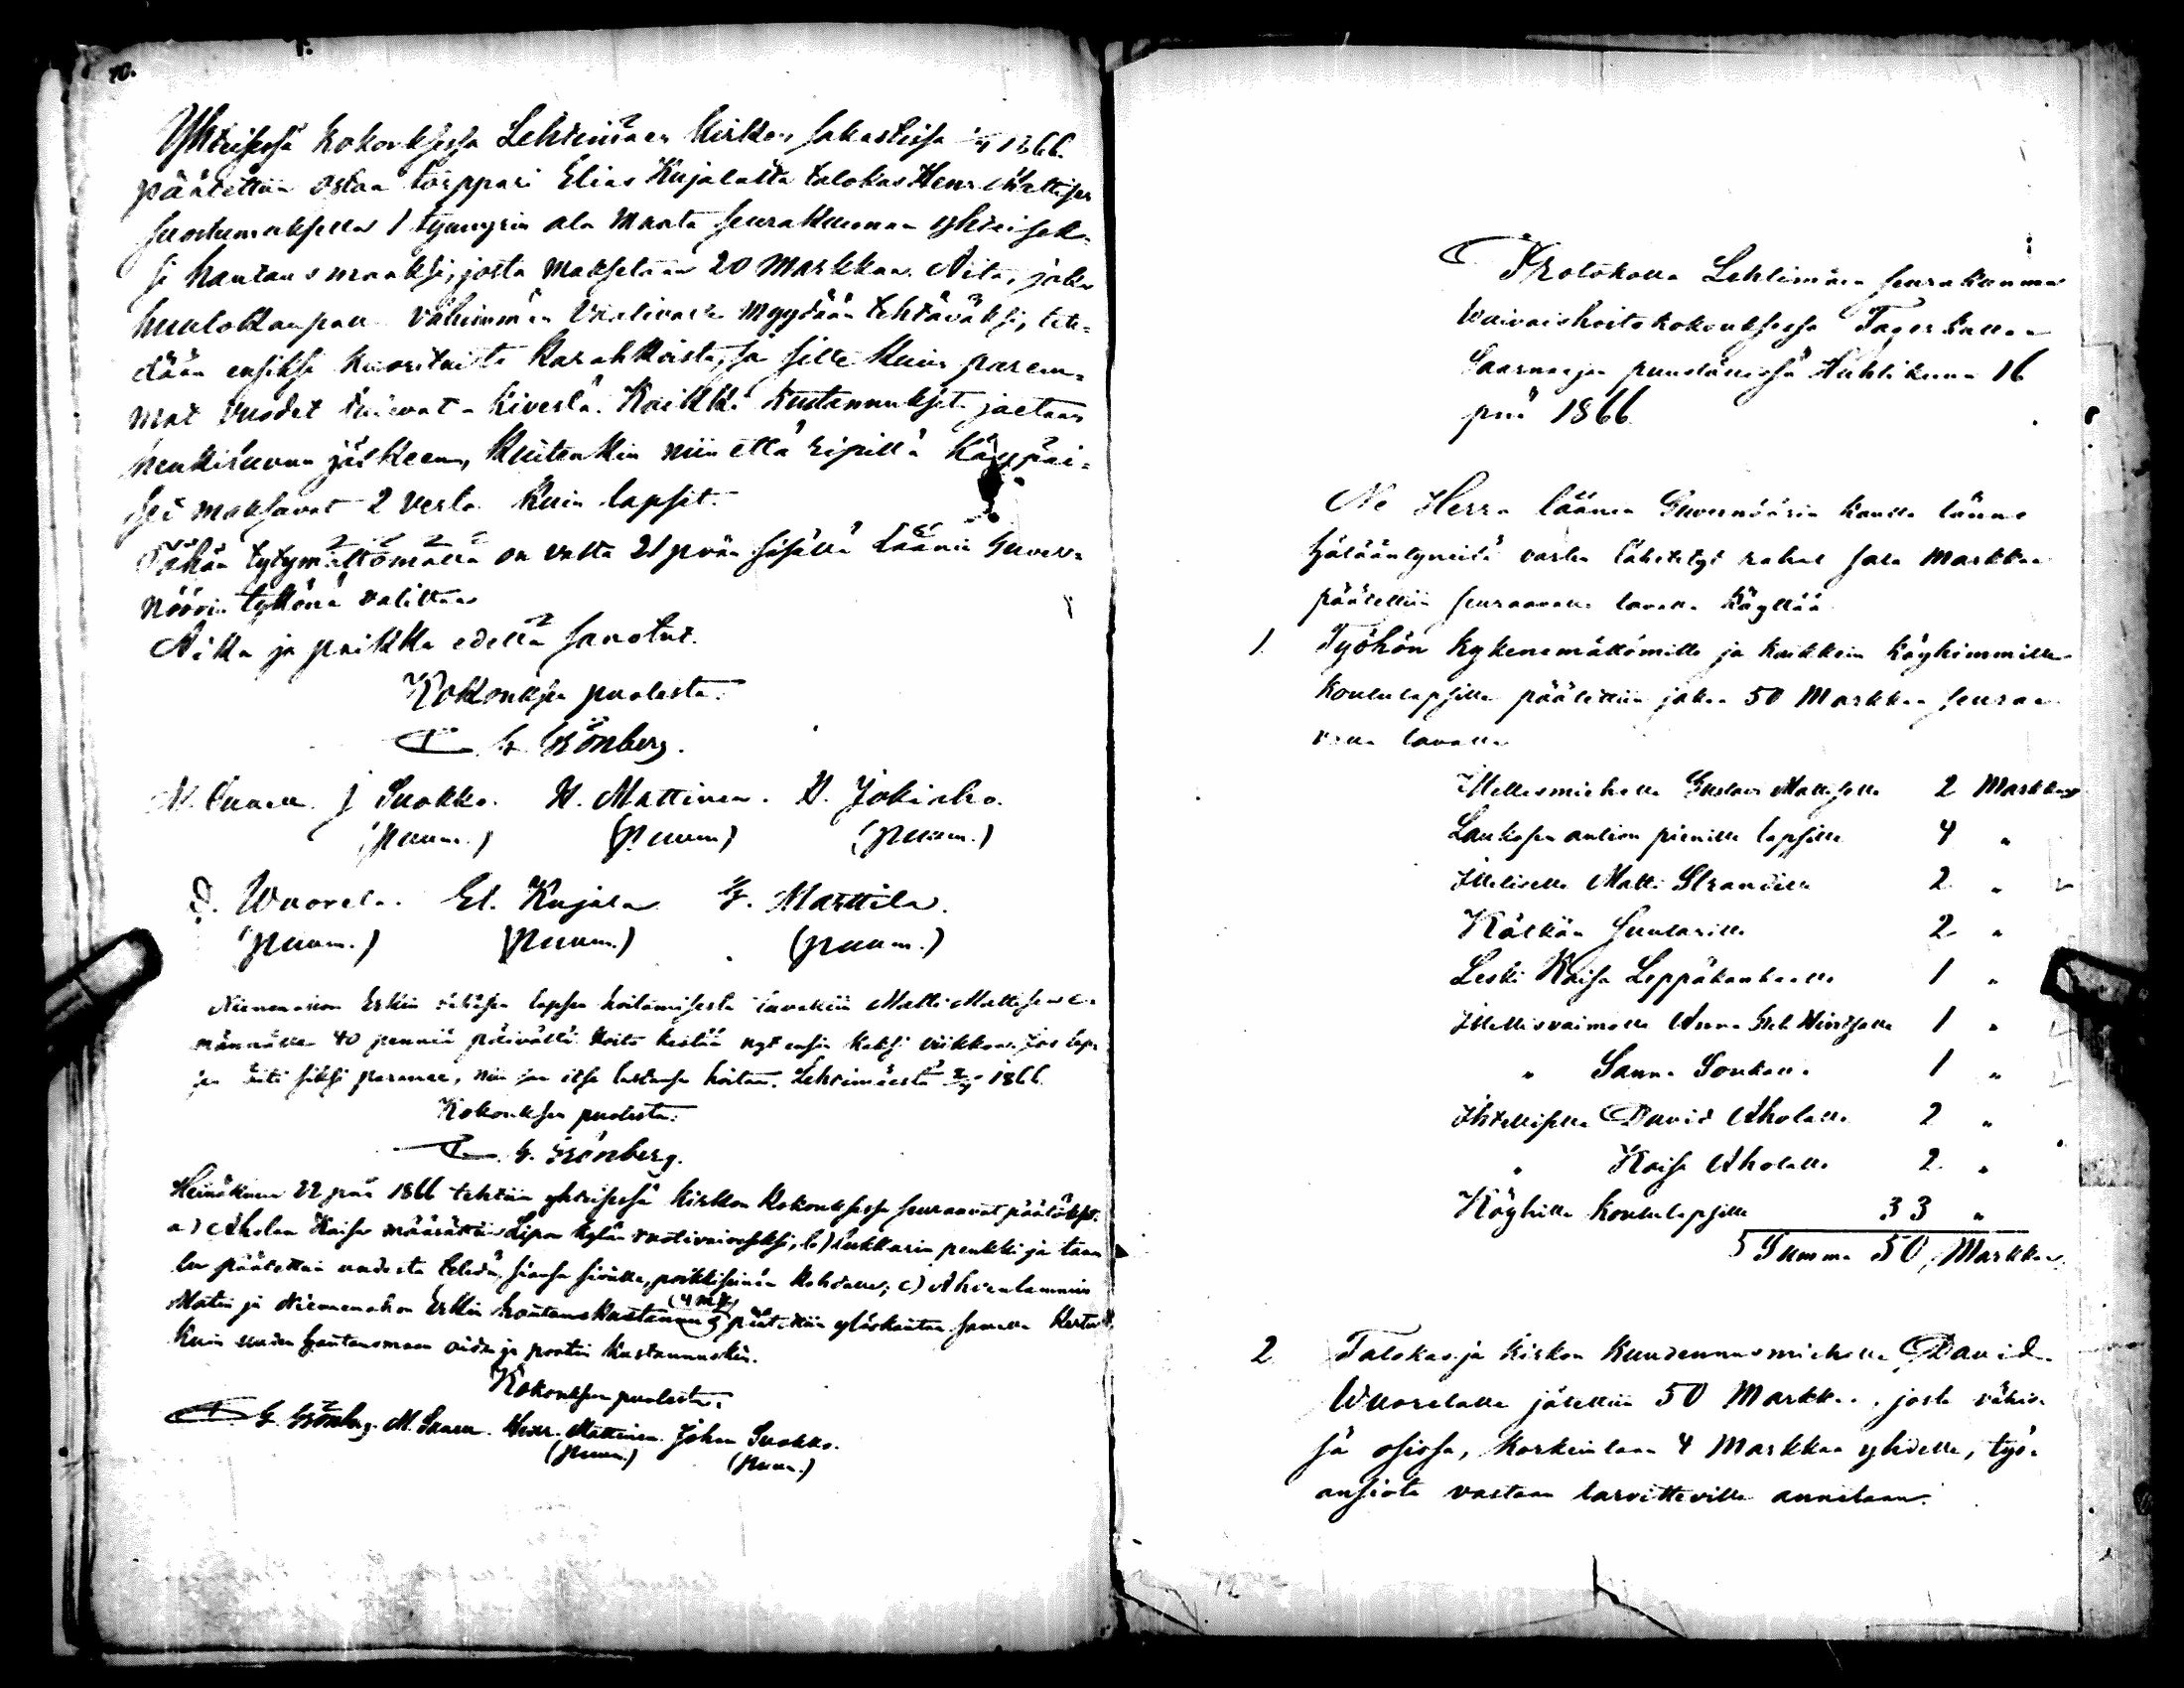 70.
Yhteisessä kokouksessa Lehtimäen kirkon sakastissa 1866.
päätettiin ostaa torppari Elias Kujalalta talokas Henr. Mattisen
suostumuksella 1 tynnyrin ala maata seurakunnan yhteisek-
si hautausmaaksi, josta maksetaan 20 Markkaa. Aita, joka
huutokaupan vähimmän vaativalle myydään tehtäväksi, teh-
dään ensiksi kuorituista karahkoista, ja sitte kuin parem-
mat vuodet tulevat kivestä. Kaikki kustannukset jaetaan
henkiluvun jälkeen, kuitenkin niin että ripillä käypäi-
set maksavat 2 verta kuin lapset.
Tähän tytymättömällä on valta 21 pvän sisällä läänin Guver-
nöörin tykönä valittaa
Aika ja paikka edellä sanotut.
Kokouksen puolesta:
G. Grönberg.
M. Saari. J. Suokko. H. Mattinen. H. Jokiaho.
(puum.) (puum) (puum.)
D. Wuorela. El. Kujala G. Marttila.
(puum.) (puum.) (puum.)
Niemenahon Erkin lapsen hoitamisesta luvattiin Matti Mattisen e-
männälle 40 penniä päivältä. Hoito kestää nyt ensin kaksi viikkoa. Jos lap-
sen äiti siksi paranee, niin saa itse lastansa hoitaa. Lehtimäestä 1866.
Kokouksen puolesta:
G. Grönberg.
Heinäkuun 22 pnä 1866 tehtiin yhteisessä kirkon kokouksessa seuraavat päätökset:
a) Aholan Kaisa määrättiin Lipon kylän ruotivaivaseksi, b) lukkarin penkki ja taau
lu päätettiin uudesta tehdä, siansa sivulle, poikkiseinän kohdalle; c) Ahvenlammin
Matin ja Niemenahon Erkin hautauskustannus (4 mk) päätettiin ylöskantaa samalla kertaa
kuin uuden hautausmaan aidan ja portin kustannuskin.
Kokouksen puolesta:
G. Grönberg. M. Saari. Henr. Mattinen. Johan Suokko.
(puum.) (puum.)
Protokolla Lehtimäen seurakunnan
Waivaishoitokokouksessa
Saarnaajan puustellissa Huhtikuun 16
pnä 1866
Ne Herra läänin Guvernöörin kautta tänne
hätääntyneitä varten lähetetyt rahat sata Markkaa
päätettiin seuraavalla tavalla käyttää
1. Työhön kykenemättömille ja kaikkein köyhimmille
koululapsille päätettiin jakaa 50 Markkaa seuraa
valla tavalla
Itellismiehelle Gustav Mattiselle 2 Markkaa
Laukosen aution pienille lapsille 4 "
Itelliselle Matti Strandille 2 "
Kälkän suutarille 2 "
Leski Kaisa Leppäkankaalle 1 "
Itellisvaimolle Anna Gret. 1 "
" Sanna 1 "
Ihtelliselle David Aholalle 2 "
" Kaisa Aholalle 2 "
Köyhille koululapsille 33 "
Summa 50 Markkaa.
2 Talokas ja kirkon kuudennusmiehelle David
Wuorelalle jätettiin 50 Markkaa, josta vähis-
sä osissa, korkeintaan 4 Markkaa yhdelle, työ-
ansiota vastaan tarvitseville annetaan.